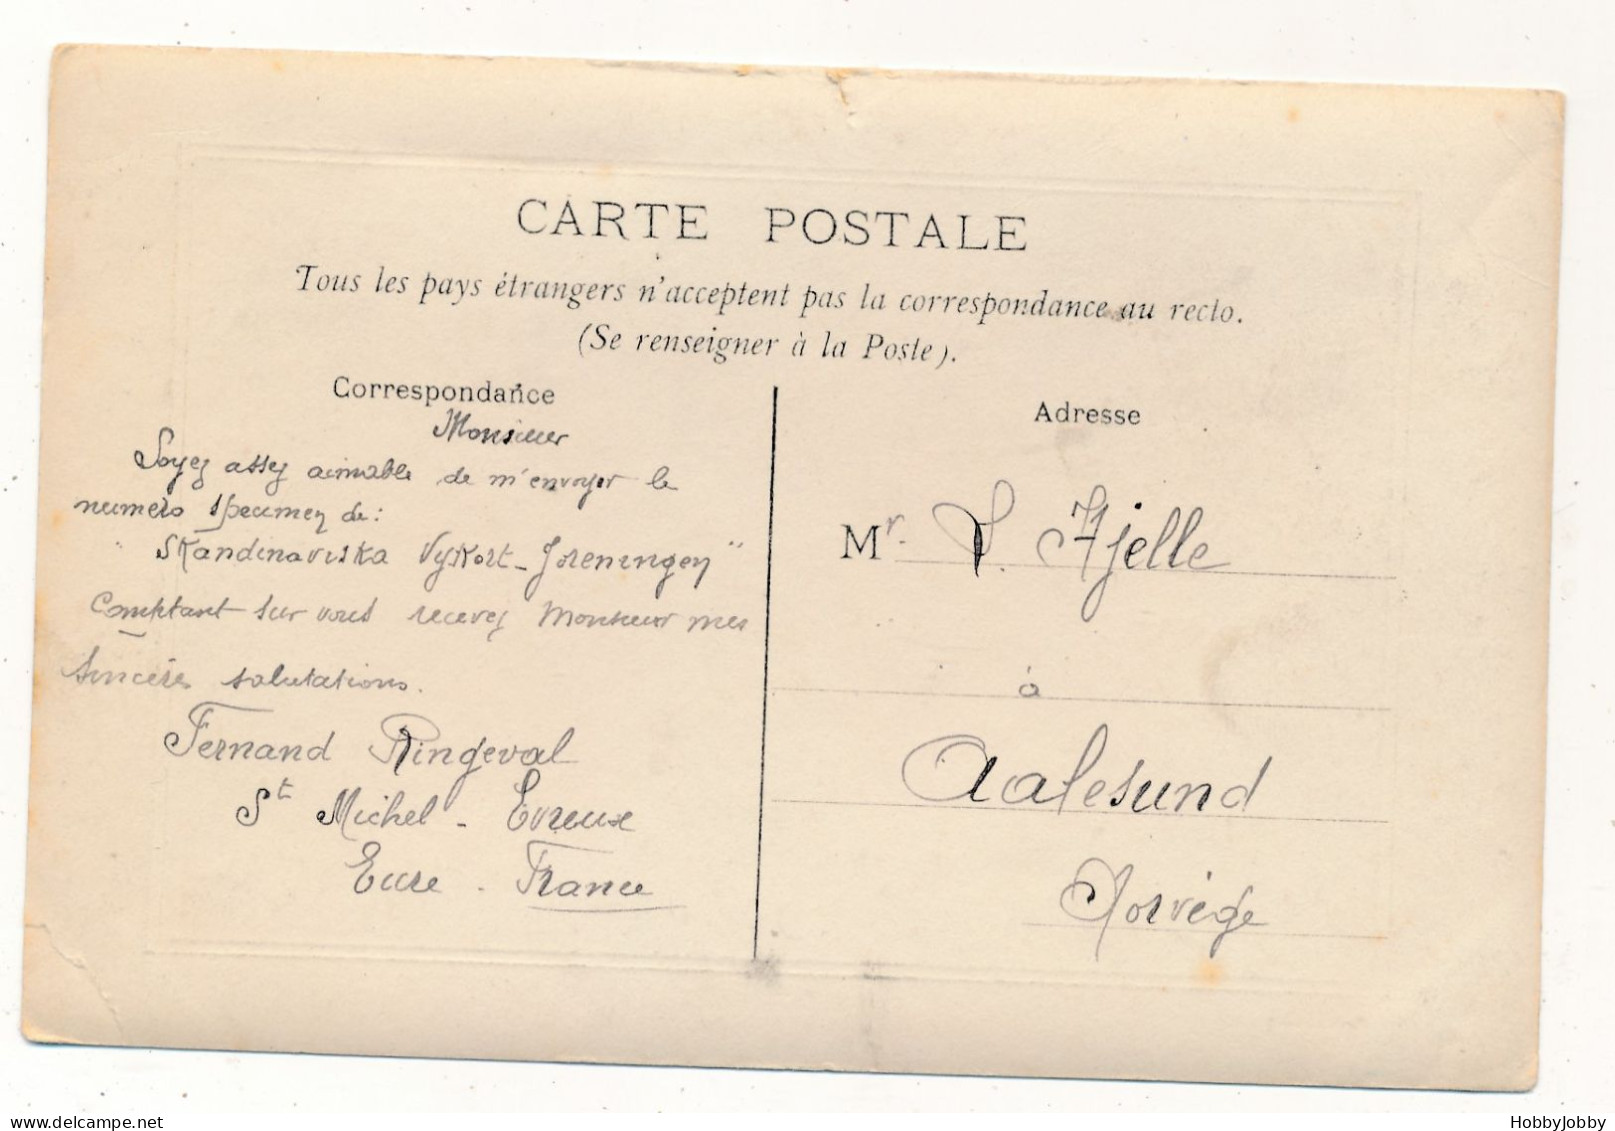 CARTE POSTALE
Tous les pays étrangers n'acceptent pas la correspondance au recto.
(Se renseigner à la Poste).
Correspondance
Monsieur
Soyez assez aimable de m'envoyer le
numero specimen de:
"Skandinaviska Vykort-Foreningen"
Comptant sur vous recevez Monsieur mes
sincères salutations.
Fernand Ringeval
St Michel - Evreux
Eure - France
Adresse
Mr. Hjelle
à
Aalesund
Norvège
HobbyJobby